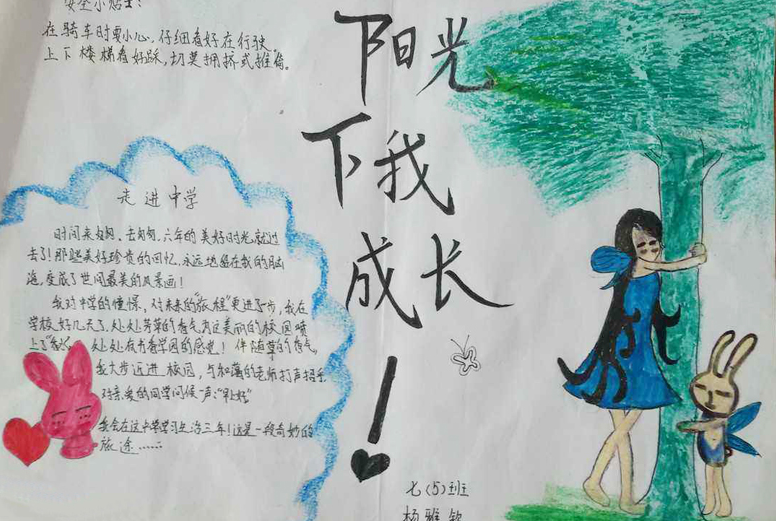 安全小贴士:
在骑车时要小心,仔细看好在行驶。
上下楼梯看好踩,切莫拥挤或推搡。
阳光
下我
成长
!
走进中学
时间来匆匆,去匆匆,六年的美好时光就过
去了!那些美好珍贵的回忆,永远地留在我的脑
海,变成了世间最美的风景画!
我对中学的憧憬,对未来的"旅程"更进了步,我在
学校好几天了,处处芳草的香气为这美丽的校园喷
上了 处处存书香学园的感觉!伴随草的香气,
我大步迈进校园,与和蔼的老师打声招呼
对亲爱的同学问候一声:"早上好"
我会在这中学学习生活三年!这是一段奇妙的
旅途......
七(5)班
杨雅钦